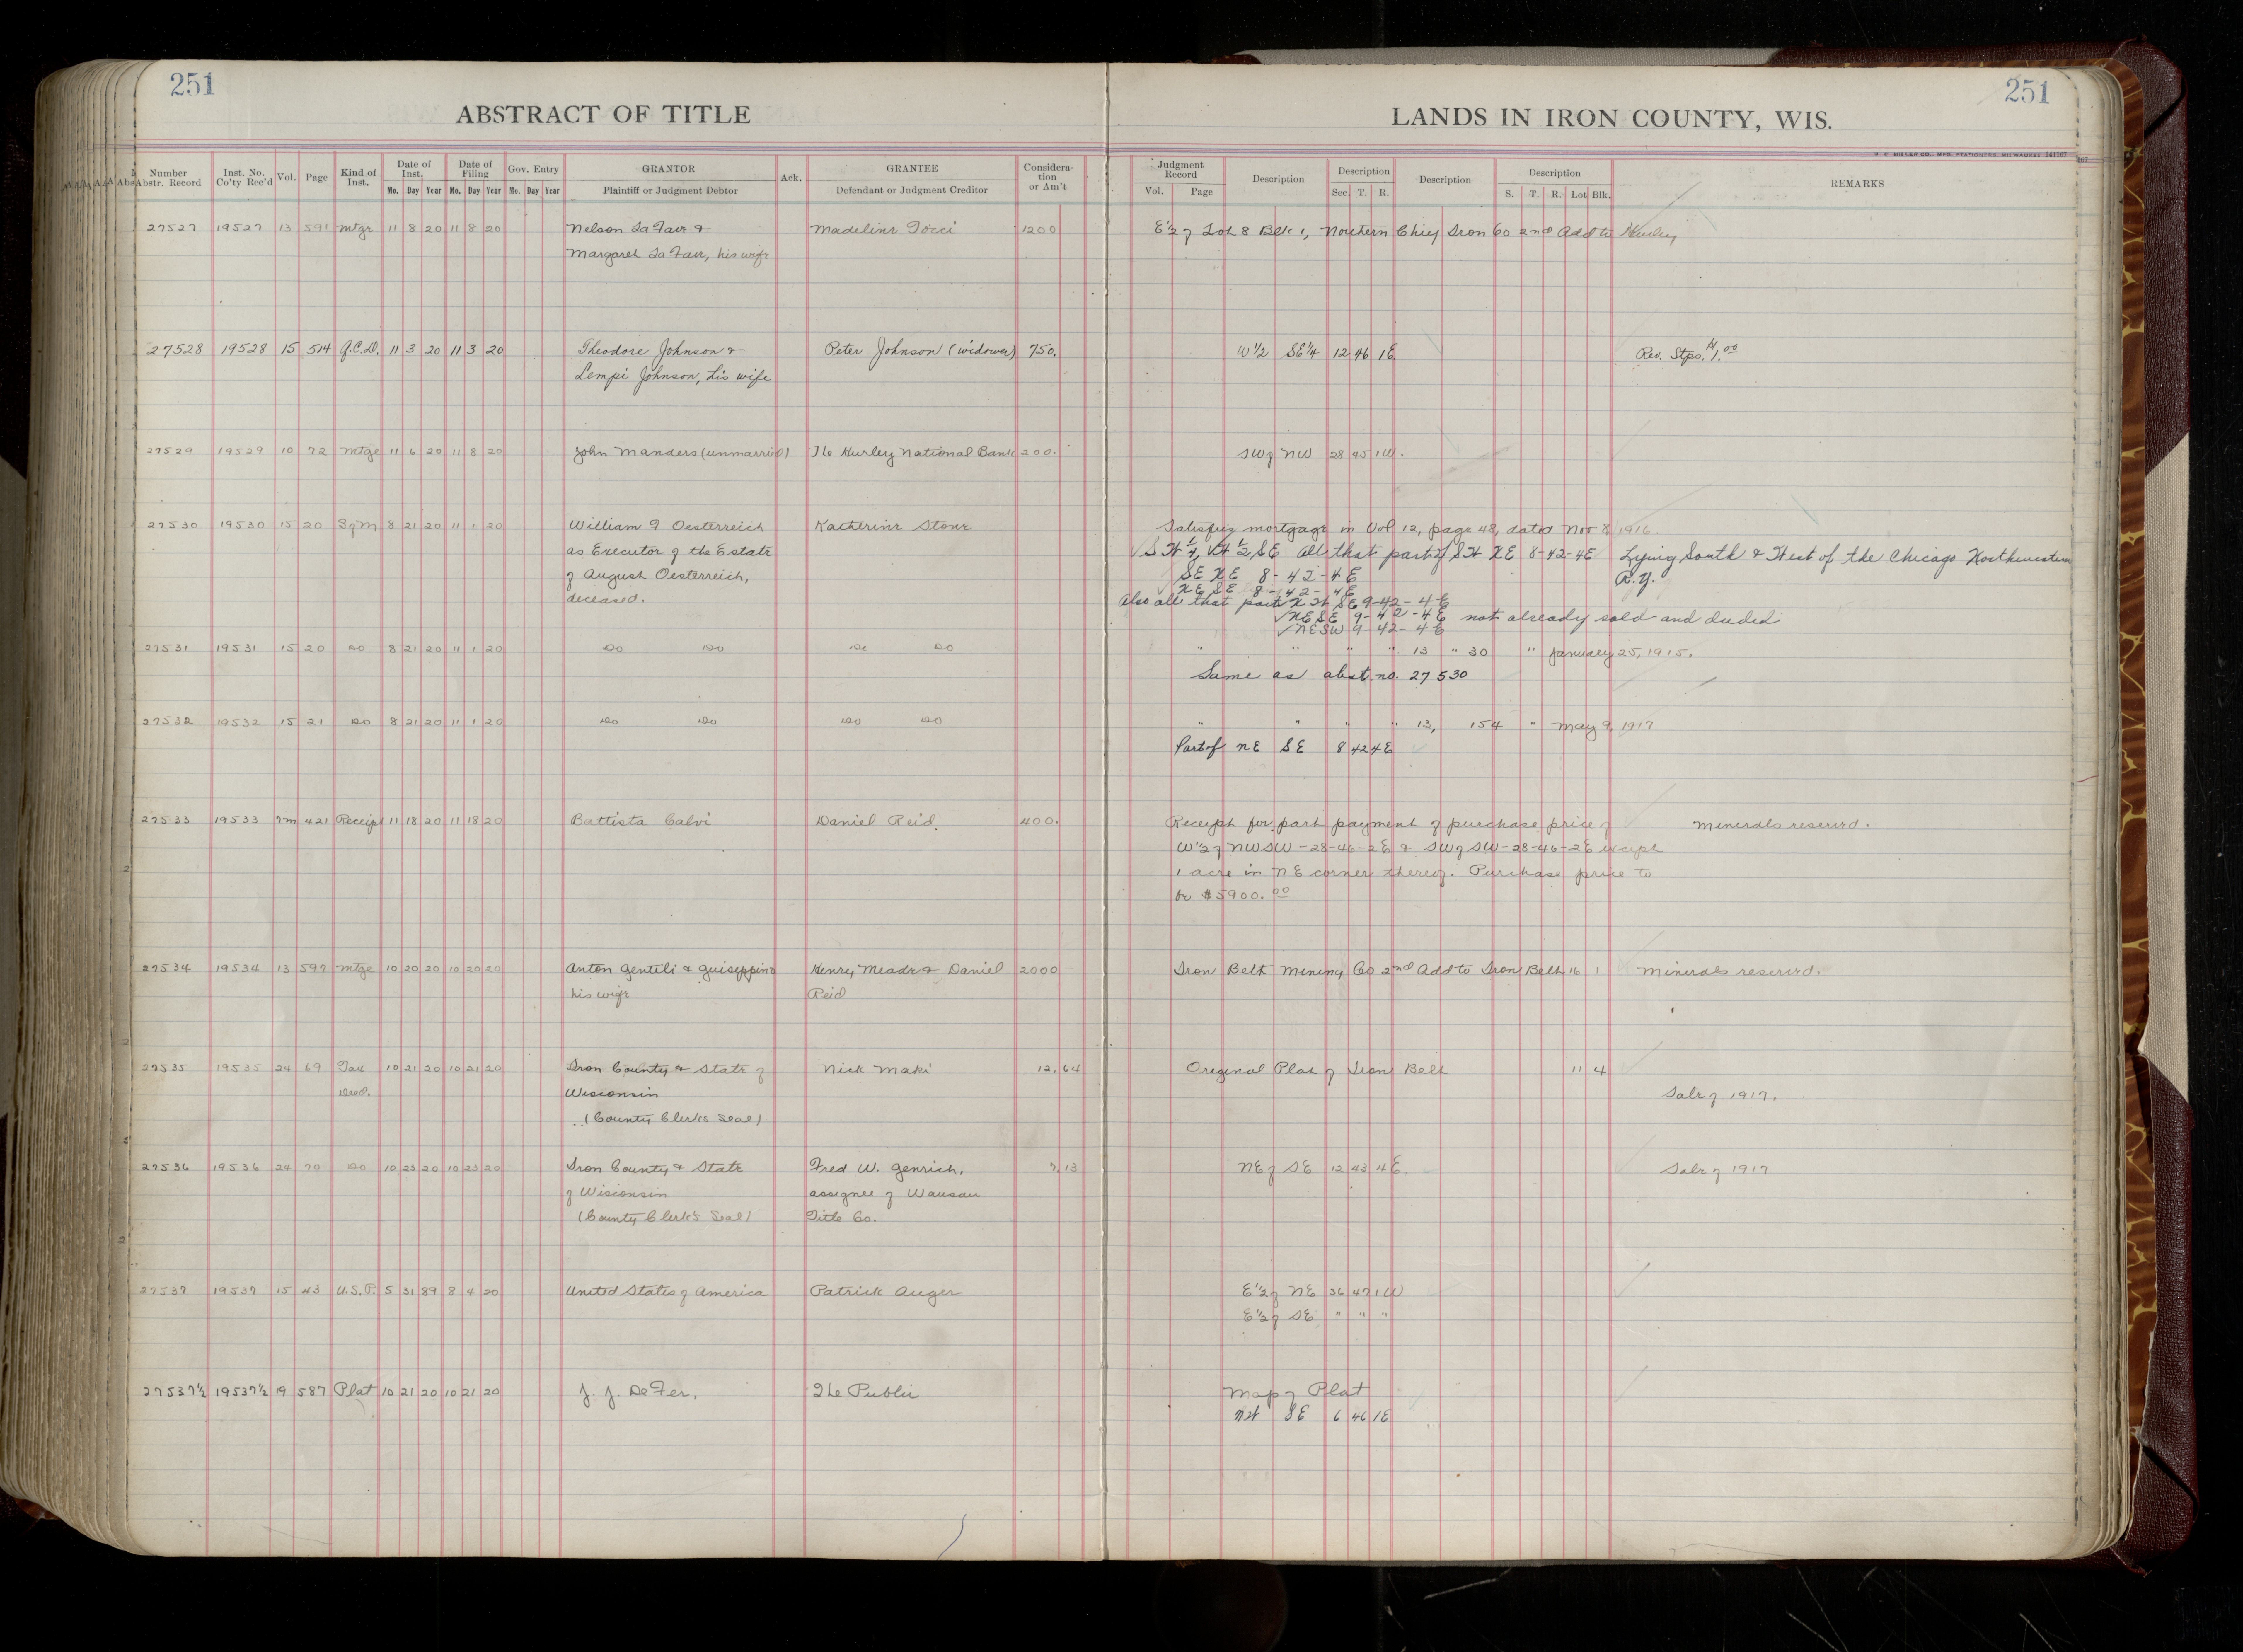 251
251
ABSTRACT OF TITLE
LANDS IN IRON COUNTY, WIS.
Number Abstr. Record | Inst. No. Co'ty Rec'd | Vol. | Page | Kind of Inst. | Date of Inst. Mo. Day Year | Date of Filing Mo. Day Year | Gov. Entry Mo. Day Year | GRANTOR Plaintiff or Judgment Debtor | Ack. | GRANTEE Defendant or Judgment Creditor | Consideration or Am't | Judgment Record Vol. Page | Description | Description Sec. T. R. | Description | Description S. T. R. Lot Blk. | REMARKS
27527 19527 13 591 Mtge 11 8 20 11 8 20 Nelson La Fave & Madeline Tocci 1200 E½ of Lot 8 Blk 1, Northern Chief Iron Co 2nd Add to Hurley
Margaret La Fave, his wife
27528 19528 15 514 Q.C.D. 11 3 20 11 3 20 Theodore Johnson & Peter Johnson (widower) 750. W½ SE¼ 12 46 1E Rev. Stps. $1.00
Lempi Johnson, his wife
27529 19529 10 72 Mtge 11 6 20 11 8 20 John Manders (unmarried) The Hurley National Bank 200. SW of NW 28 45 1W.
27530 19530 15 20 S of M 8 21 20 11 1 20 William 9 Oesterreich Katherine Stone Satisfies mortgage in Vol 12, page 48, dated Nov 8 1916.
as Executor of the Estate √SW ¼, W ½, SE All that part of SW NE 8-42-4E Lying South & West of the Chicago Northwestern
of August Oesterreich, SE NE 8-42-4E R.Y.
deceased. NE SE 8-42-4E
Also all that part NW SE 9-42-4E
√NE SE 9-42-4E not already sold and deeded
√NE SW 9-42-4E
27531 19531 15 20 Do 8 21 20 11 1 20 Do Do Do Do " " " " 13 " 30 " January 25, 1915.
Same as abst. no. 27530
27532 19532 15 21 Do 8 21 20 11 1 20 Do Do Do Do " " " " 13, 154 " May 9, 1917
Part of NE SE 8 42 4E
27533 19533 7m 421 Receipt 11 18 20 11 18 20 Battista Calvi Daniel Reid. 400. Receipt for part payment of purchase price of Minerals reserved.
W½ of NWSW-28-46-2E & SW of SW-28-46-2E except
1 acre in NE corner thereof. Purchase price to
be $5900.00
27534 19534 13 597 Mtge 10 20 20 10 20 20 Anton Gentili & Guiseppina Henry Meade & Daniel 2000 Iron Belt Mining Co 2nd Add to Iron Belt 16 1 Minerals reserved.
his wife Reid
27535 19535 24 69 Tax 10 21 20 10 21 20 Iron County & State of Nick Maki 12.64 Original Plat of Iron Belt 11 4
Deed. Wisconsin Sale of 1917.
(County Clerk's Seal)
27536 19536 24 70 Do 10 23 20 10 23 20 Iron County & State Fred W. Genrich, 7.13 NE of SE 12 43 4E. Sale of 1917
of Wisconsin assignee of Wausau
(County Clerk's Seal) Title Co.
27537 19537 15 43 U.S.P. 5 31 89 8 4 20 United States of America Patrick Auger E½ of NE 36 47 1W
E½ of SE " " "
27537½ 19537½ 19 587 Plat 10 21 20 10 21 20 J. J. DeFer, The Public Map of Plat
NW SE 6 46 1E